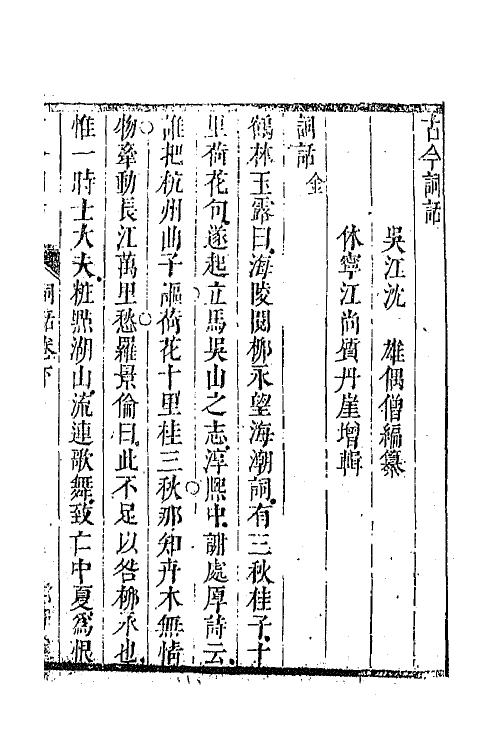 古今詞話
吳江沈　雄偶僧編纂
休寧江尚質丹崖增輯
詞話　金
鶴林玉露曰海陵閱栁永望海潮詞有三秋桂子十
里荷花句遂起立馬吳山之志淳熙中謝處厚詩云
誰把杭州曲子謳荷花十里桂三秋那知卉木無情
物牽動長江萬里愁羅景倫曰此不足以咎栁永也
惟一時士大夫粧㸃湖山流連歌舞致亡中夏爲恨
詞話卷下